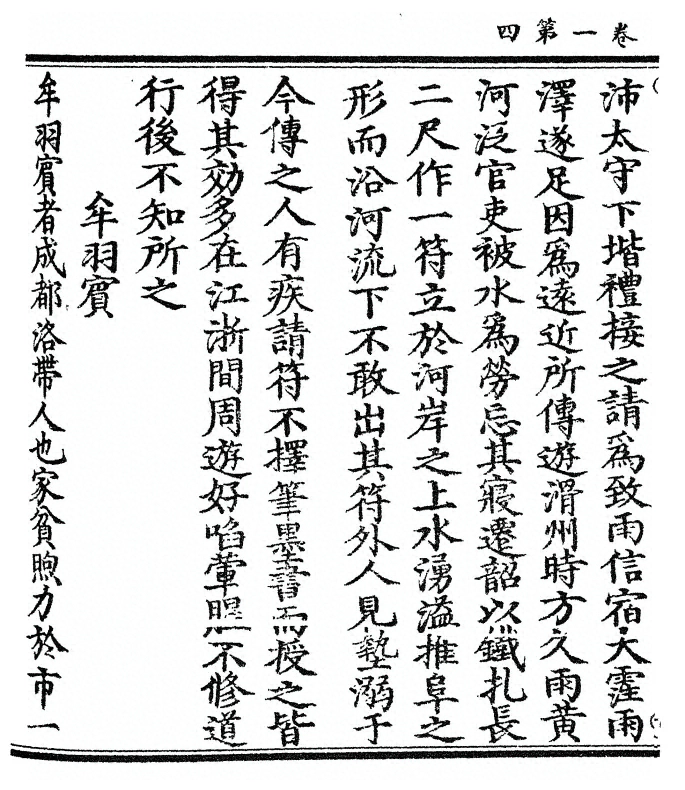 卷一第四
沛太守下堦禮接之請爲致雨信宿大霪雨
澤遂足因爲遠近所傳遊滑州時方久雨黃
河泛官吏被水爲勞忘其寢遷韶以鐵扎長
二尺作一符立於河岸之上水湧溢推阜之
形而沿河流下不敢出其符外人見墊溺于
今傳之人有疾請符不擇筆墨書而授之皆
得其効多在江浙間周遊好啗葷腥不修道
行後不知所之
牟羽賓
牟羽賓者成都洛帶人也家貧煦力於市一